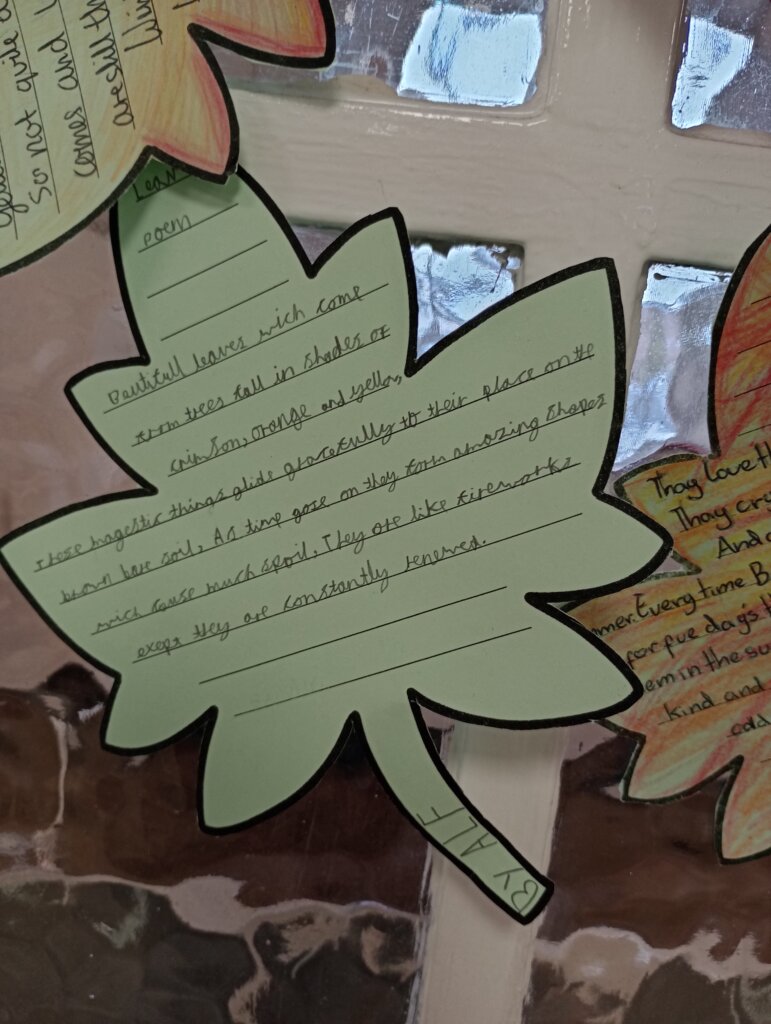 Gea
So not quite a
comes and u
are still th
livi
Leav
poem
Beautifull leaves wich come
from trees fall in shades of
crimson, orange and yellow,
These magestic things glide gracefully to their place on the
brown bare soil, As time gose on they form amazing shapes
wich cause much spoil, They are like fireworks
exept they are constantly renewed.
BY ALF
Thay love th
Thay cry
And a
mmer. Every time B
for five day's th
em in the su
kind and
odd